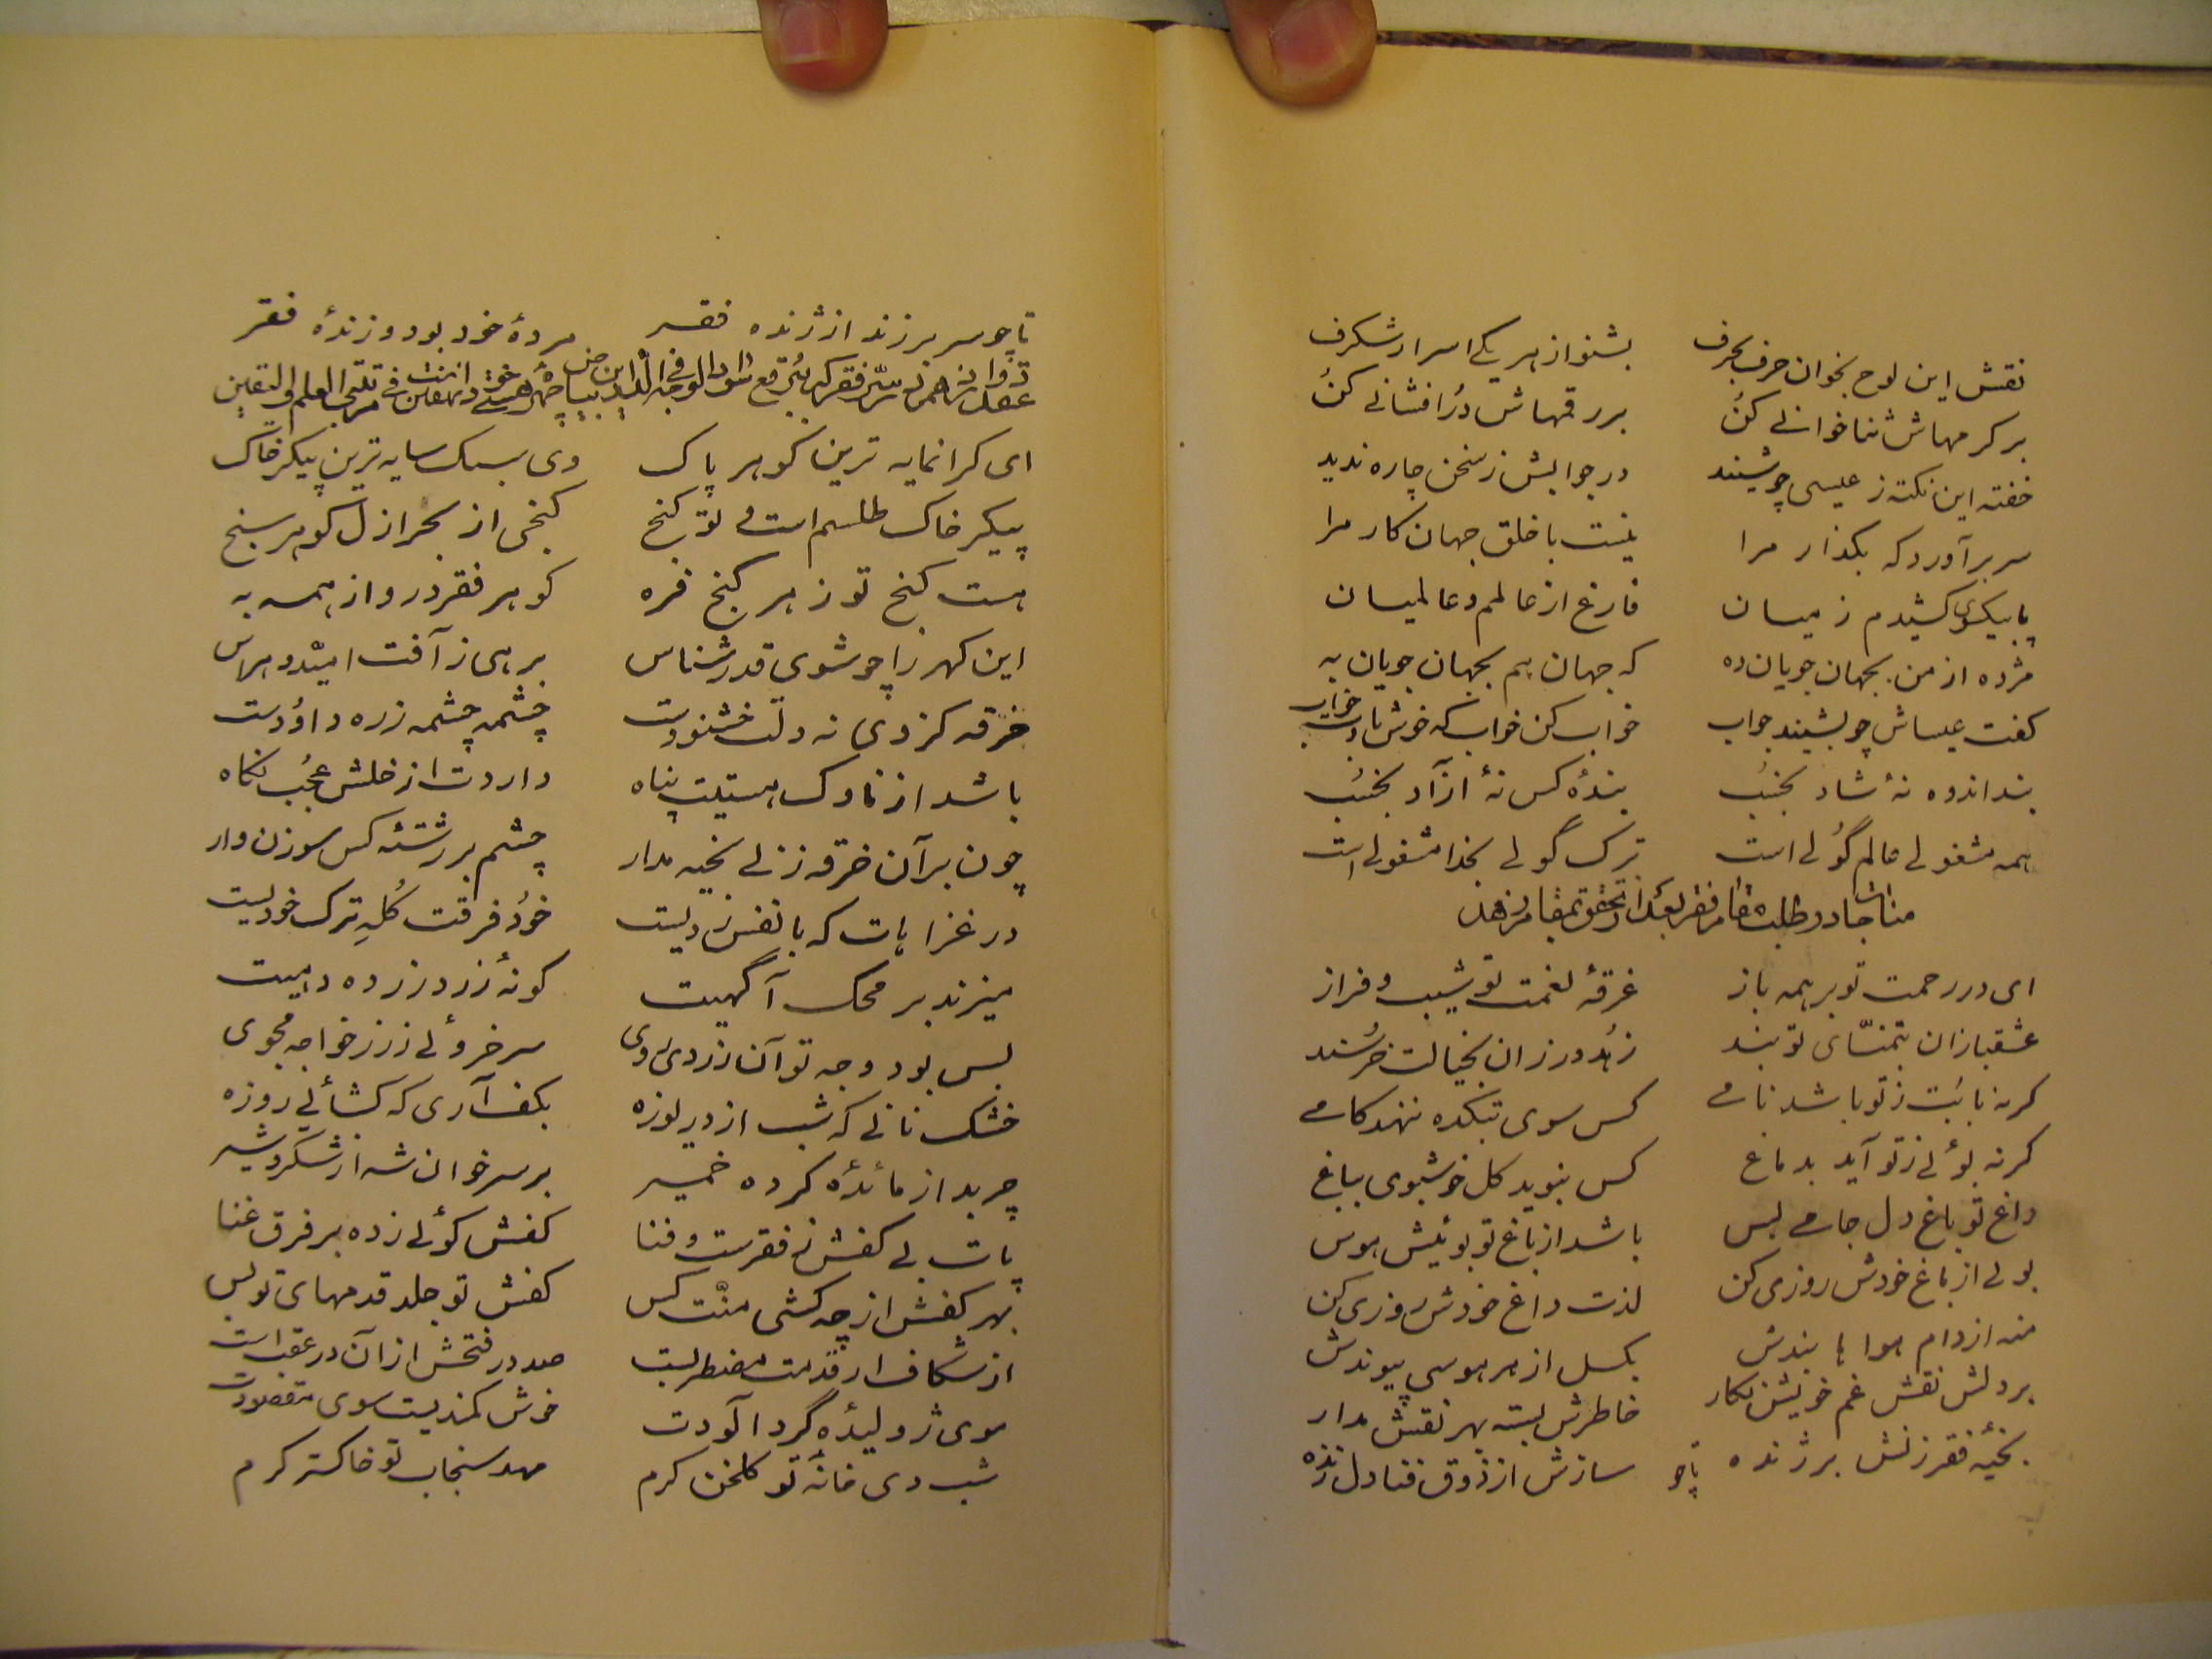 نقش این لوح بخوان حرف بحرف	بشنو از هر یکے اسرار شکرف
بر کرمهاش ثنا خوانے کن	بر رقمهاش دُر افشانے کن
خفته این نکته ز عیسی چو شنید	در جوابش ز سخن چاره ندید
سر برآورد که بگذار مرا	نیست با خلق جهان کار مرا
پا بیکسوی کشیدم ز میان	فارغ از عالم و عالمیان
مژده از من بجهان جویان ده	که جهان هم بجهان جویان به
کفت عیساش چو بشنید جواب	خواب کن خواب که خوش بادت خواب
بند اندوه نهٔ شاد بخسُب	بندهٔ کس نهٔ آزاد بخسُب
همه مشغولے عالم گولے است	ترک گولے بخدا مشغولے است
مناجات در طلب مقام فقر بعد از تحقق بمقام زهد
ای در رحمت تو بر همه باز	غرقهٔ نعمت تو شیب و فراز
عشقبازان بتمنّای تو بند	زهد ورزان بخیالت خرسند
کر نه با بُت ز تو باشد نامے	کس سوی بتکده ننهد کامے
کر نه بوئے ز تو آید بدماغ	کس نبوید کل خوشبوی بباغ
داغ تو باغ دل جامے بس	باشد از باغ تو بوئیش هوس
بوئے از باغ خودش روزی کن	لذت داغ خودش روزی کن
منه از دام هوا پا بندش	بکسل از هر هوسی پیوندش
بر دلش نقش غم خویش نکار	خاطرش بسته بهر نقش مدار
بخیهٔ فقر زنش بر ژنده	سازش از ذوق فنا دل زنده
تا چو
تا چو سر بر زند از ژنده فقر	مردهٔ خود بود و زندهٔ فقر
ای کرانمایه ترین کوهر پاک	وی سبک سایه ترین پیکر خاک
پیکر خاک طلسم است و تو کنج	کنجی از بحر ازل کوهر سنج
هست کنج تو ز هر کنج فره	کوهر فقر درو از همه به
این کهر را چو شوی قدر شناس	برهی ز آفت امید و هراس
خرقه کز وی نه دلت خشنودست	چشمه چشمه زره داؤدست
باشد از ناوک هستیت پناه	داردت از خلش عُجب نکاه
چون بر آن خرقه زنے بخیه مدار	چشم بر رشتهٔ کس سوزن وار
در غزاهات که با نفس ردیست	خود فرقت کُلهِ ترک خودیست
میزند بر محک آکهیت	کونهٔ زرد زر ده دهیت
بس بود وجه تو آن زردی روی	سرخروئے ز زر خواجه مجوی
خشک نانے که شب از دریوزه	بکف آری که کشائے روزه
چربد از مائدهٔ کرده خمیر	بر سر خوان شه از شکر و شیر
پات بے کفش ز فقرست و فنا	کفش کوئے زده بر فرق غنا
بهر کفش از چه کشی منّت کس	کفش تو جلد قدمهای تو بس
از شکاف ار قدمت مضطربست	صد در فتحش از آن در عقب است
موی ژولیدهٔ گرد آلودت	خوش کمندیست سوی مقصودت
شب دی خانهٔ تو کلخن کرم	مهد سنجاب تو خاکستر کرم